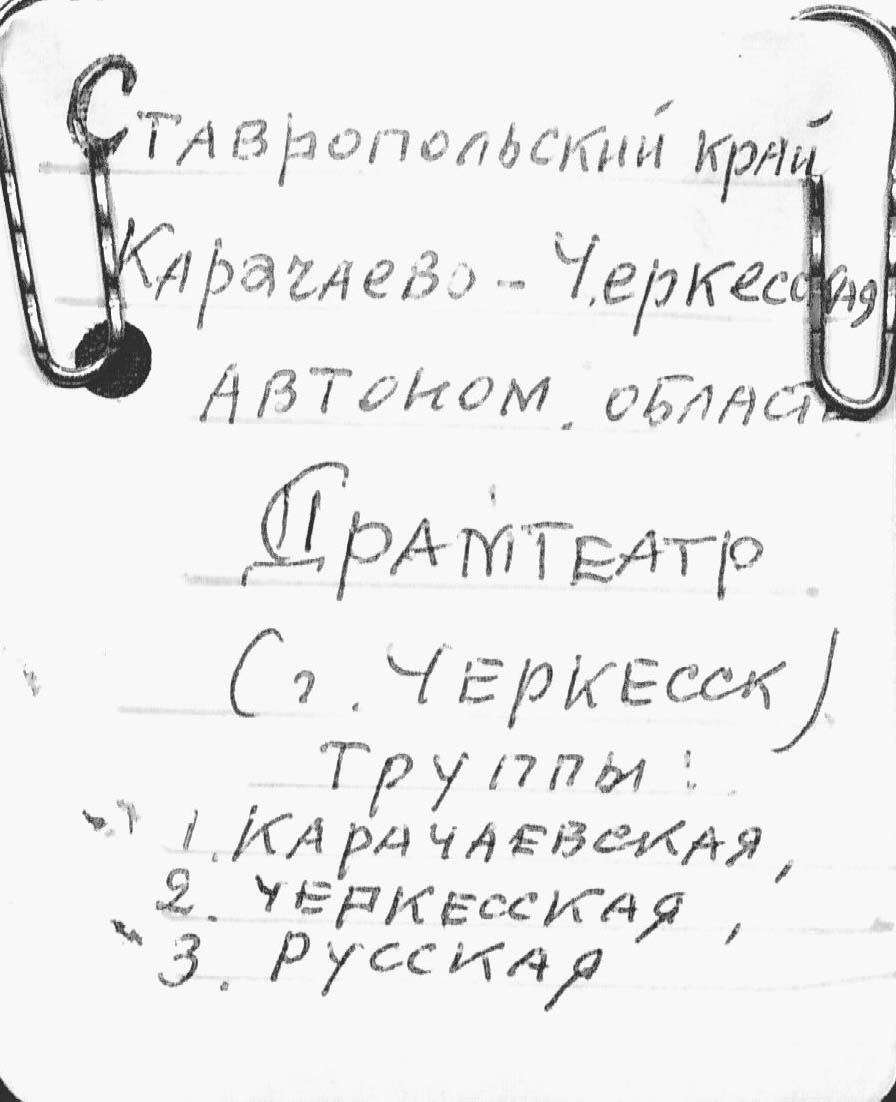 Ставропольский край
Карачаево - Черкесская
Автоном. область
Драмтеатр
(г. Черкесск)
Труппы:
1. Карачаевская,
2. Черкесская,
3. Русская